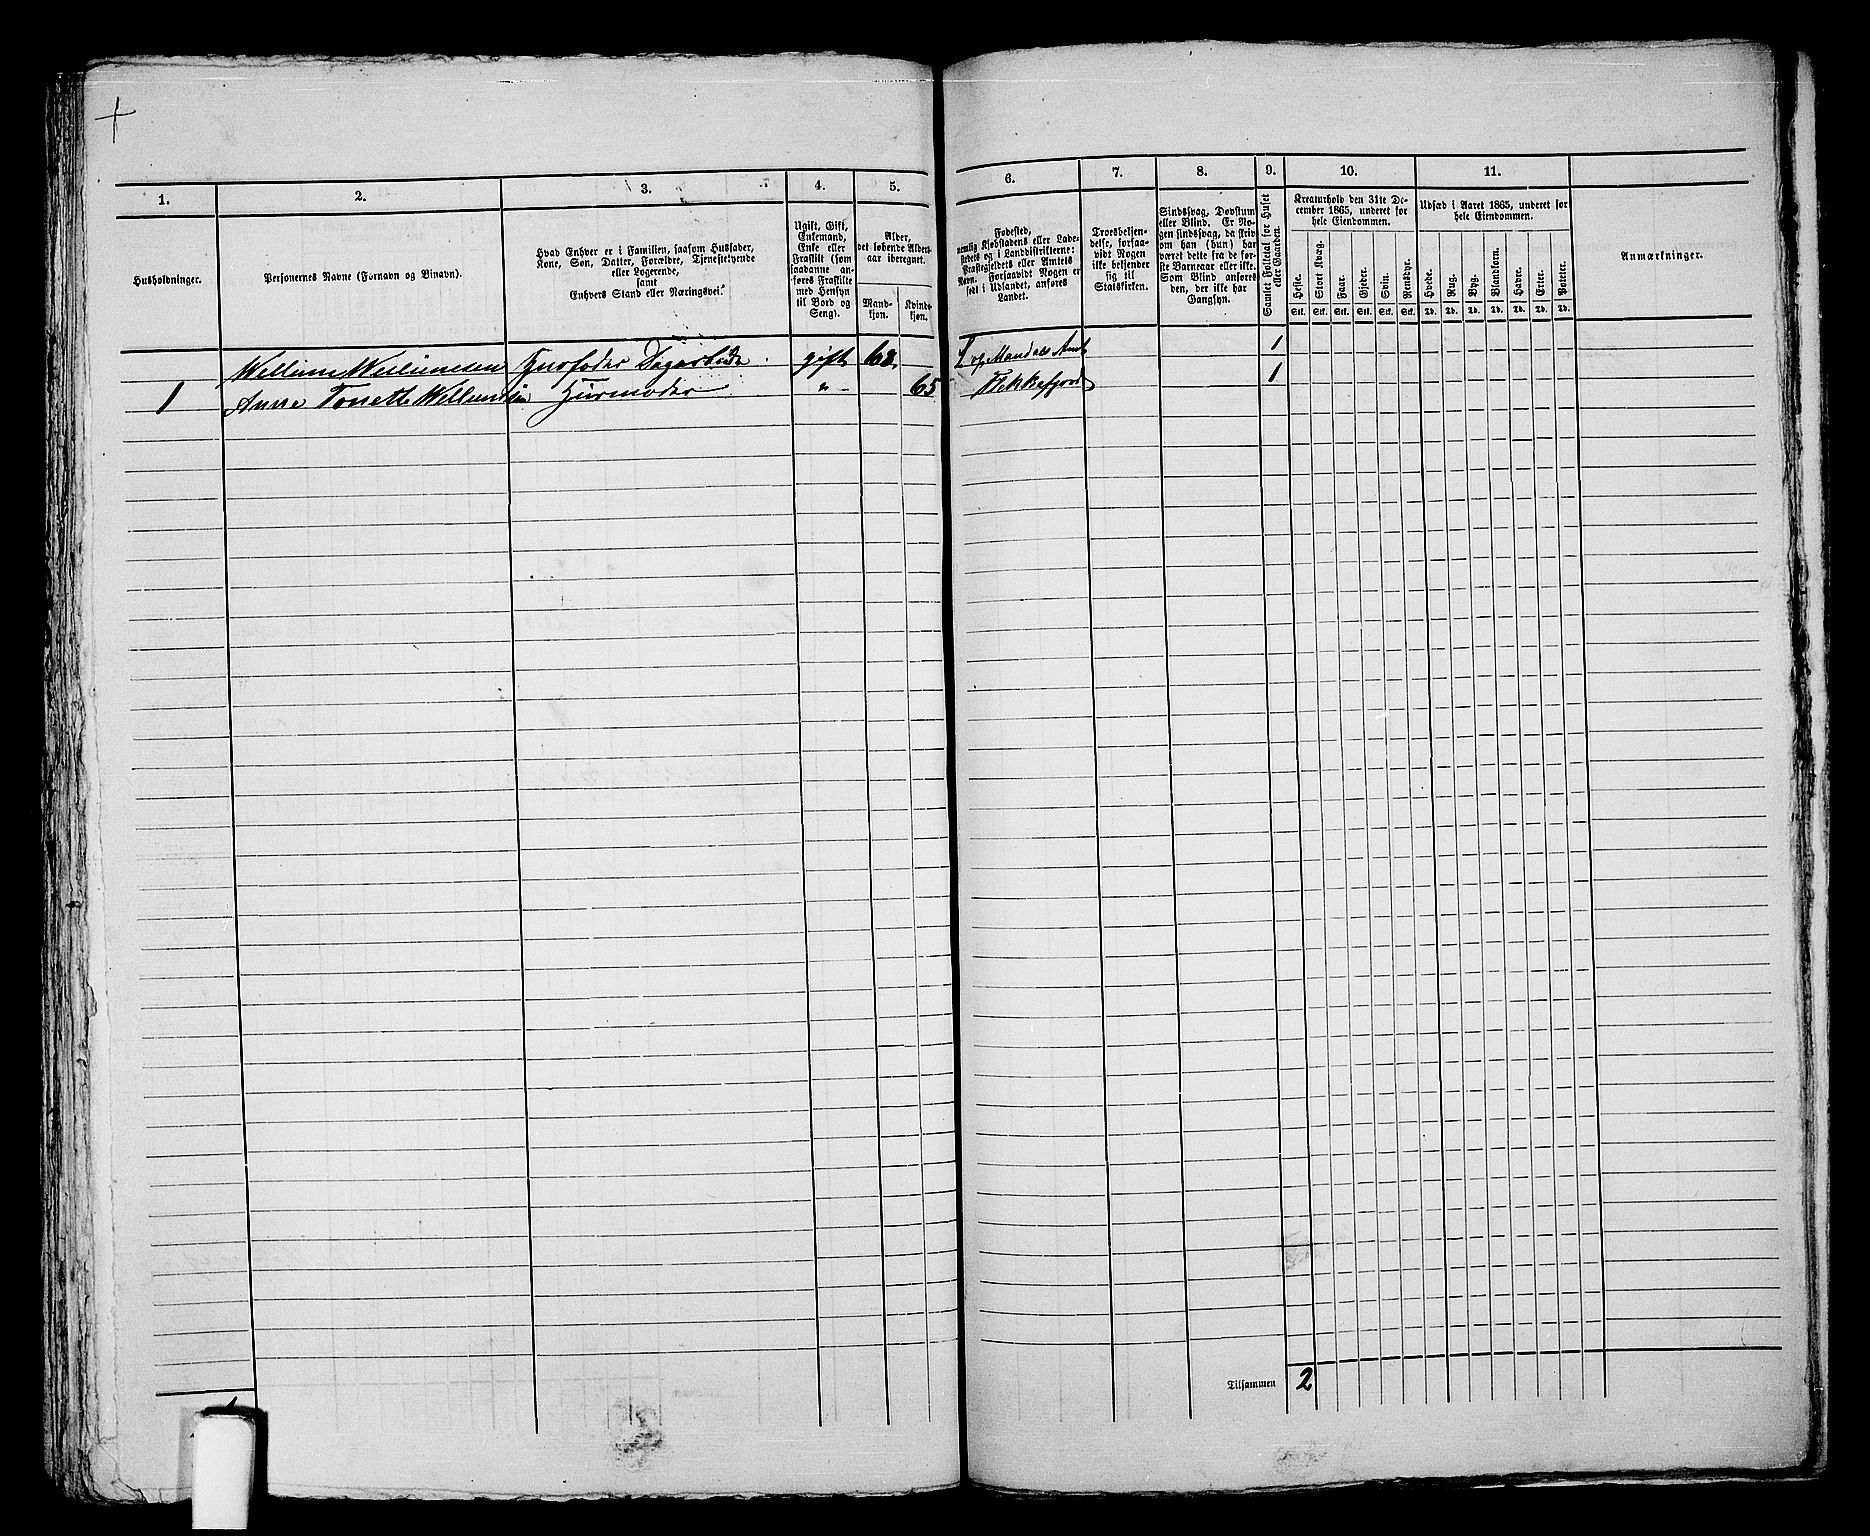 1.
2.
3.
4.
5.
6.
7.
8.
9.
10.
11.
Husholdninger.
Personernes Navne (Fornavn og Binavn).
Hvad Enhver er i Familien, saasom Husfader,
Kone, Søn, Datter, Forældre, Tjenestetyende
eller Logerende,
samt
Enhvers Stand eller Næringsvei.
Ugift, Gift,
Enkemand,
Enke eller
Fraskilt (som
saadanne an-
føres Fraskilte
med Hensyn
til Bord og
Seng).
Alder,
det løbende Alders-
aar iberegnet.
Mand-
kjøn.
Kvinde-
kjøn.
Fødested,
nemlig Kjøbstadens eller Lade-
stedets og i Landdistrikterne:
Præstegjeldets eller Amtets
Navn. Forsaavidt Nogen er
født i Udlandet, anføres
Landet.
Troesbekjen-
delse, forsaa-
vidt Nogen
ikke bekjender
sig til
Statskirken.
Sindssvag, Døvstum
eller Blind. Er No-
gen sindssvag, da skriv
om han (hun) har
været dette fra de før-
ste Barneaar eller ikke.
Som Blind anføres
den, der ikke har
Gangsyn.
Samlet Folketal for Huset
eller Gaarden.
Kreaturhold den 31te De-
cember 1865, underet for
hele Eiendommen.
Heste.
Stort Kvæg.
Faar.
Gjeder.
Svin.
Rensdyr.
Stk. Stk. Stk. Stk. Stk. Stk.
Udsæd i Aaret 1865, underet for
hele Eiendommen.
Hvede.
Rug.
Byg.
Blandkorn.
Havre.
Erter.
Poteter.
Td. Td. Td. Td. Td. Td. Td.
Anmærkninger.
Husfader gift 68 L og Mandals Amt 1
1 Anne Husmoder " 65 Flekkefjord 1
Tilsammen 2